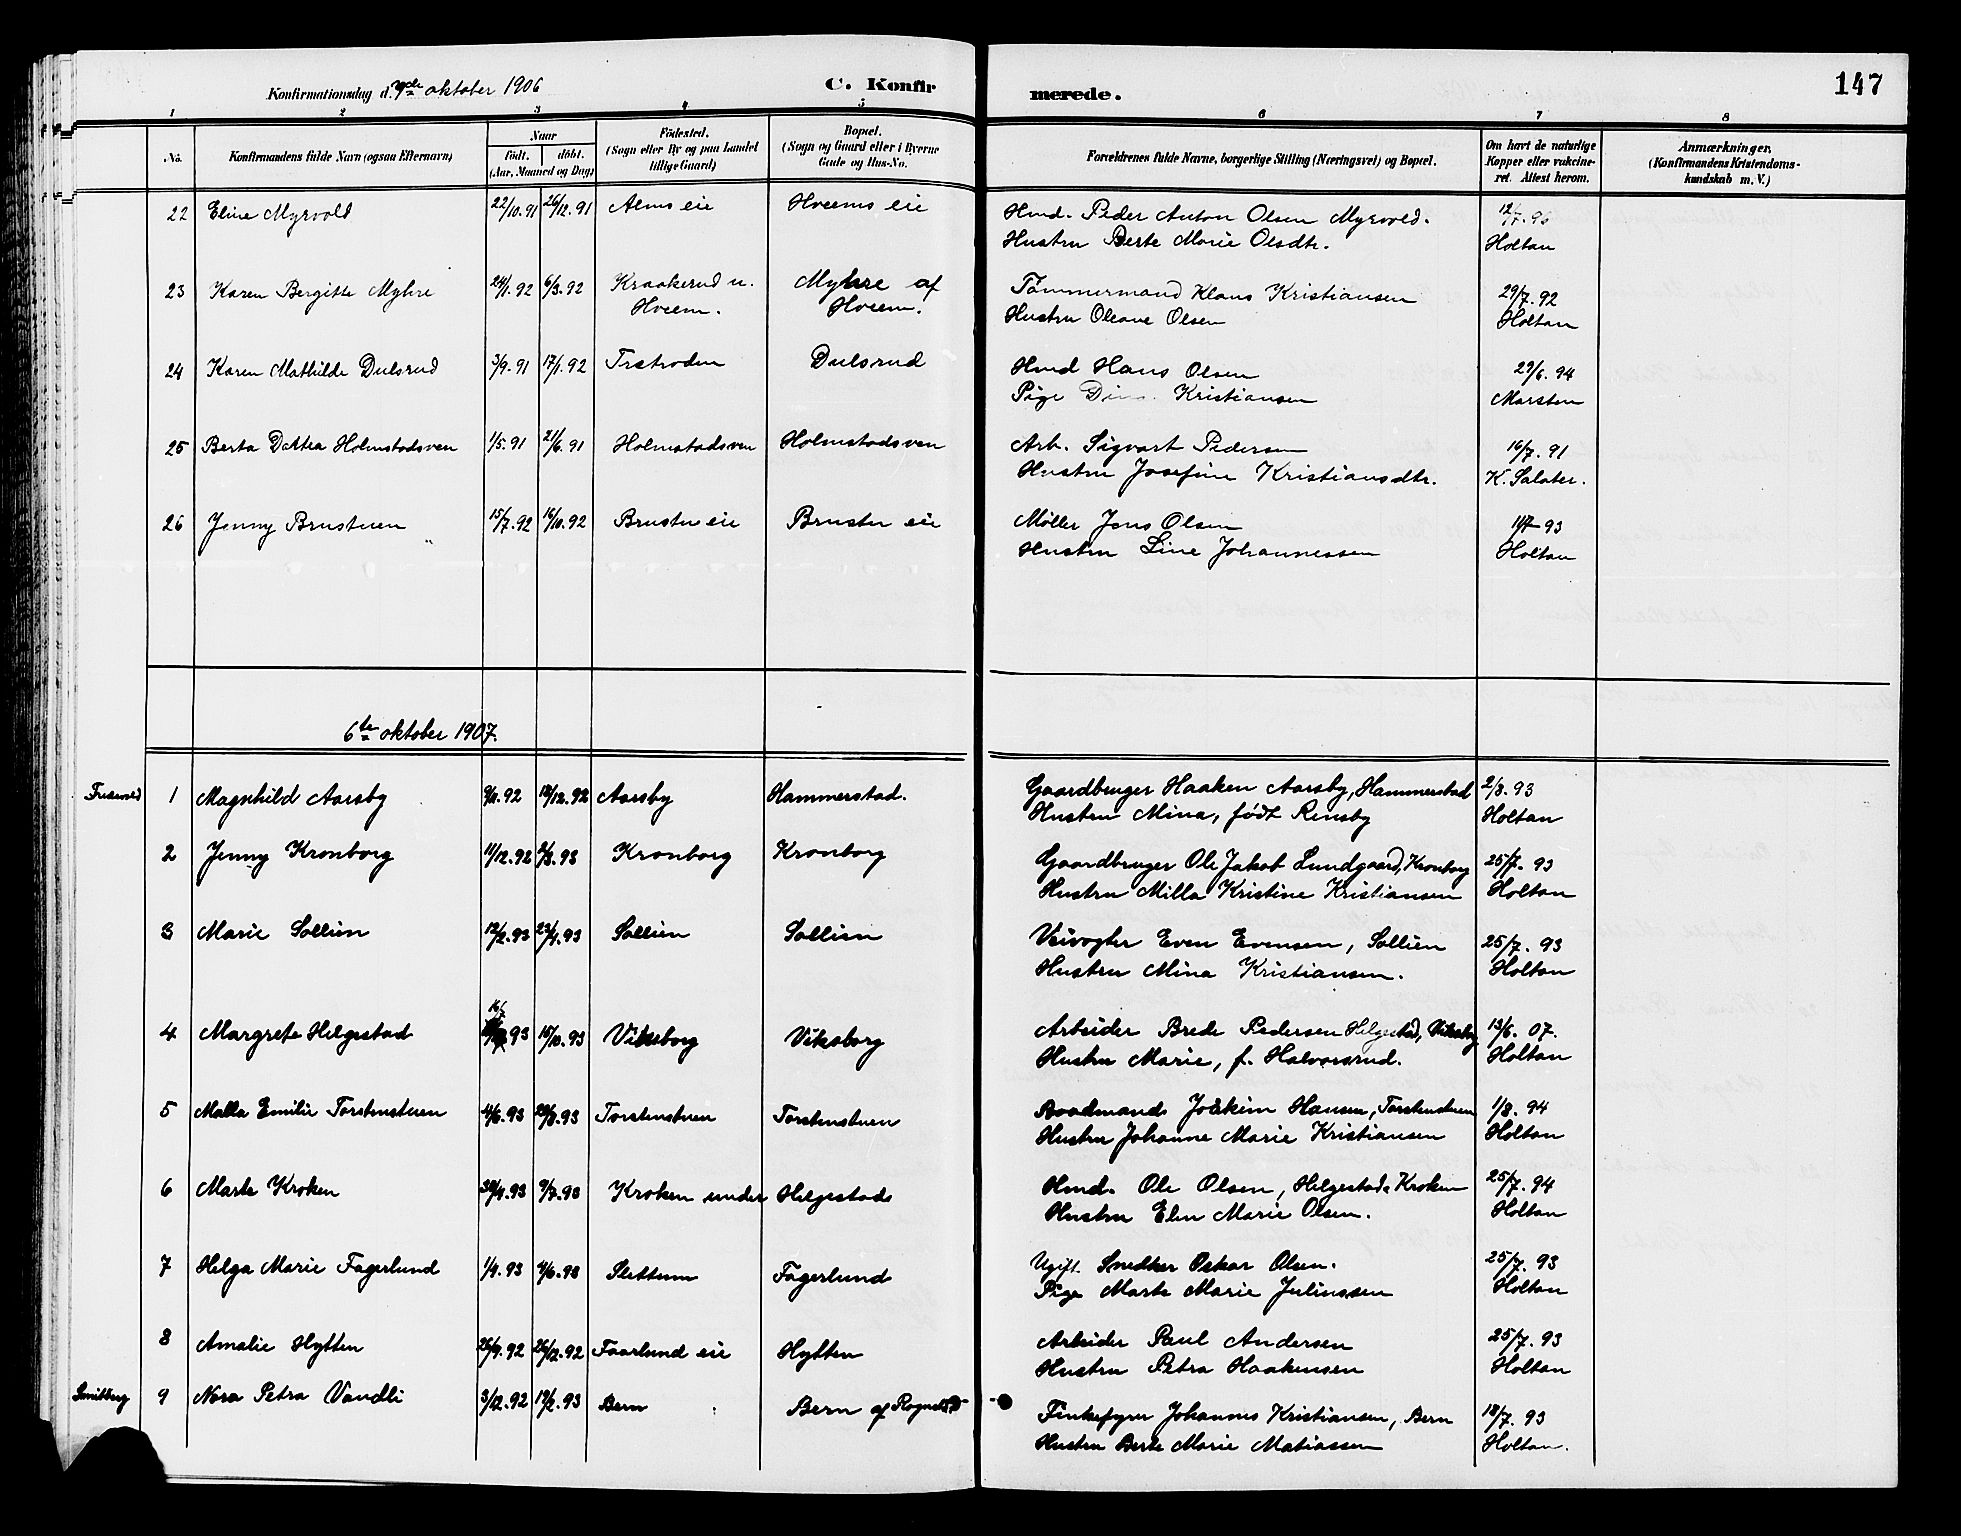 Konfirmationsdag d. 7de oktober 1906
C. Konfirmerede.
147
1 2 3 4 5 6 7 8
No.
Konfirmandens fulde Navn (ogsaa Efternavn)
Naar
født. døbt.
(Aar, Maaned og Dag)
Födested.
(Sogn eller By og paa Landet
tillige Gaard)
Bopæl.
(Sogn og Gaard eller i Byerne
Gade og Hus-No.
Forældrenes fulde Navne, borgerlige Stilling (Næringsvei) og Bopæl.
Om havt de naturlige
Kopper eller vakcine-
ret. Attest herom.
Anmærkninger,
(Konfirmandens Kristendoms-
kundskab m. V.)
22 Eline Myrvold 22/10.91 26/12.91 Alms eie Hveems eie Hmd. Peder Anton Olsen Myrvold. 12/7.96
Hustru Berte Marie Olsdtr. Holtan
23 Karen Bergitte Myhre 24/1.92 6/3.92 Kraakerud u. Myhre af Tömmermand Klaus Kristiansen 29/7.92
Hveem. Hveem. Hustru Oleave Olsen Holtan
24 Karen Mathilde Dulsrud 3/9.91 17/1.92 Trstroden Dulsrud Hmd Hans Olsen 29/6.94
Pige Kristiansen Marsten
25 Berta Dortea Holmstadsven 1/5.91 21/6.91 Holmstadsven Holmstadsven Arb. Sigvart Pedersen 16/7.91
Hustru Josefine Kristiansdtr. K. Salater.
26 Jenny Brustuen 15/7.92 16/10.92 Brustu eie Brustu eie Møller Jens Olsen 11/7 93
Hustru Line Johannessen Holtan
6te oktober 1907.
1 Magnhild Aarsby 9/11.92 18/12.92 Aarsby Hammerstad. Gaardbruger Haaken Aarsby, Hammerstad 2/8.93
Hustru Mina, født Rensby Holtan
2 Jenny Kronborg 11/12.92 3.93 Kronborg Kronborg Gaardbruger Ole Jakob Lundgaard, Kronborg 25/7.93
Hustru Milla Kristine Kristiansen Holtan
3 Marie Sollien 12/2.93 23/4.93 Sollien Sollien Veivogter Even Evensen, Sollien 25/7.93
Hustru Mina Kristiansen. Holtan
4 Margrete Helgestad 93 15/10.93 Viksborg Viksborg Arbeider Brede Pedersen Helgestad, Viksborg 13/6.07.
Hustru Marie, f. Halvorsrud. Holtan
5 Malla Emilie Torstenstuen 4/6.93 20/8.93 Torstenstuen Torstenstuen Baadmand Joakim Hansen, Torstenstuen 1/8.94
Hustru Johanne Marie Kristiansen Holtan
6 Marte Kroken 30/4.93 9/7.93 Kroken under Helgestad Hmd. Ole Olsen, Helgestad Kroken 25/7.94
Hustru Elen Marie Olsen. Holtan
7 Helga Marie Fagerlund 1/4.93 4/6.93 Slettum Fagerlund Ugift Snedker Oskar Olsen. 25/7.93
Pige Marte Marie Juliussen Holtan
8 Amalie Hytten 26/9.92 26/12.92 Faarlund eie Hytten Arbeider Paul Andersen 25/7.93
Hustru Petra Haakensen Holtan
Smitborg 9 Nora Petra Vandli 3/12.92 19/2.93 Bern Bern af Rognst Finkefyrer Johannes Kristiansen, Bern 18/7.93
Hustru Berte Marie Matiassen Holtan.